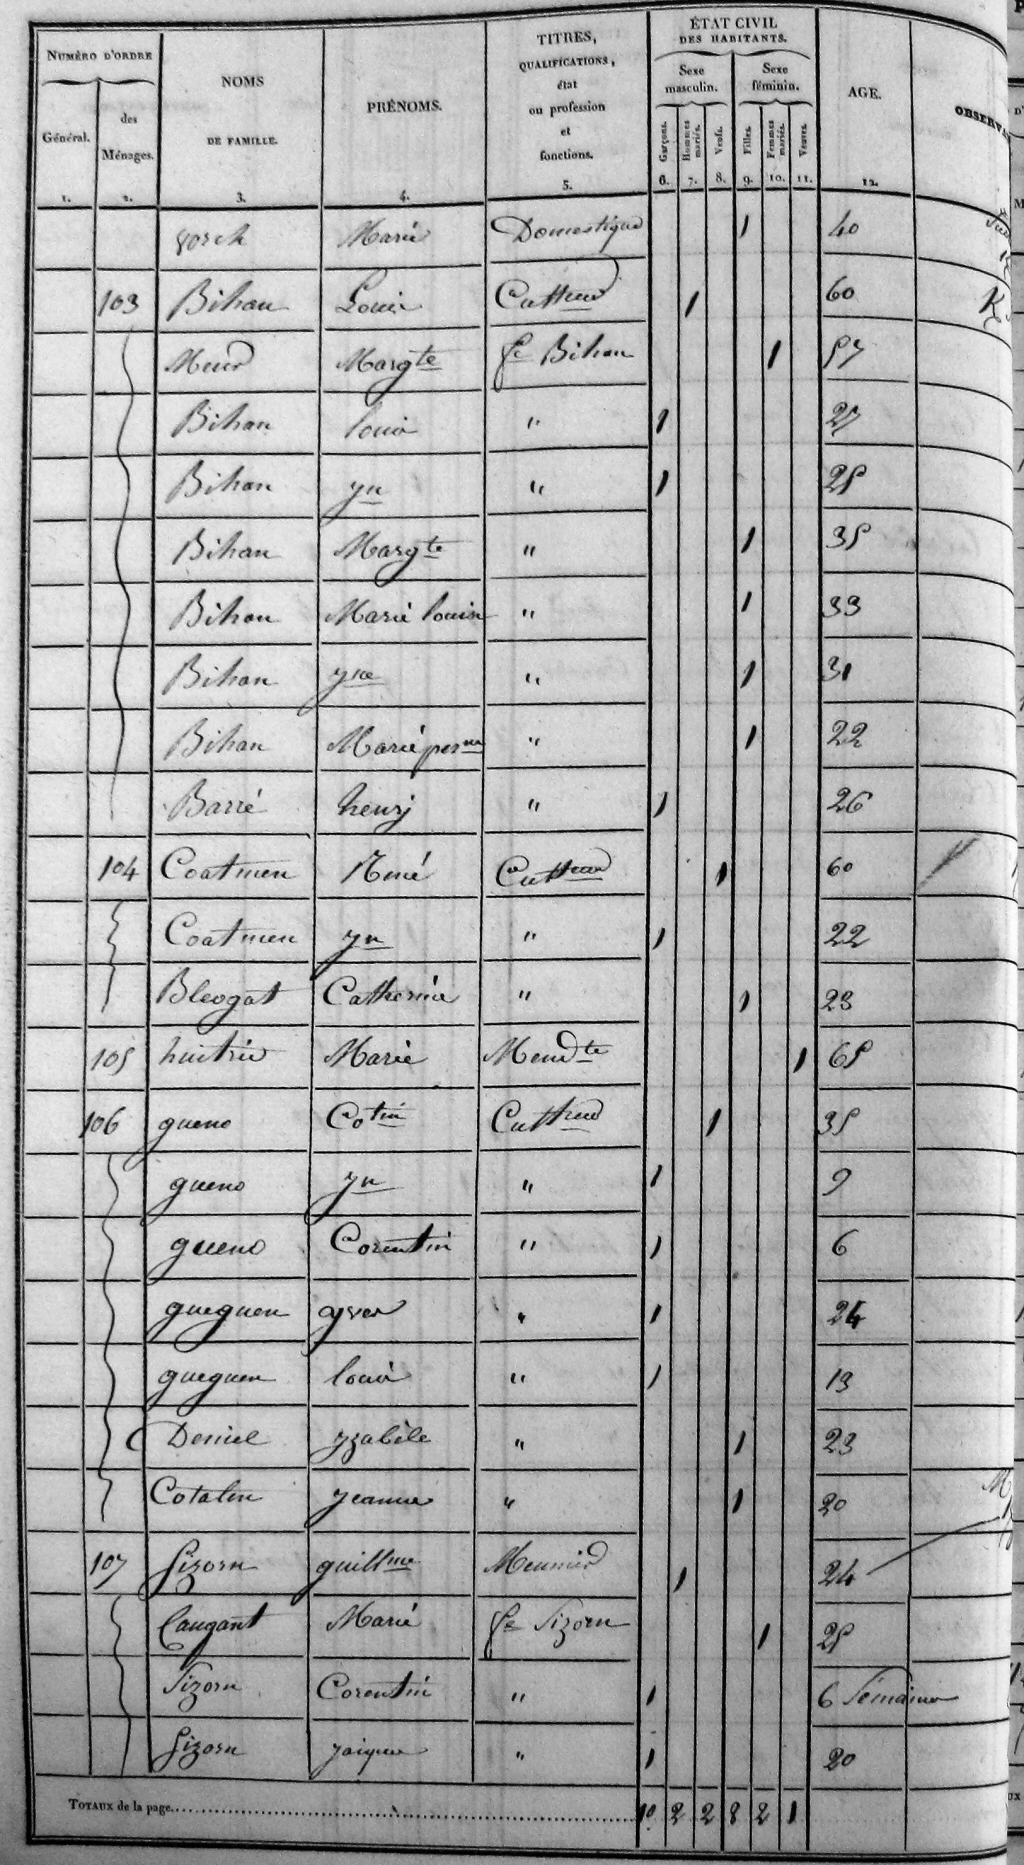 NUMÉRO D'ORDRE
Général.
des Ménages.
NOMS DE FAMILLE.
PRÉNOMS.
TITRES, QUALIFICATIONS, état ou profession et fonctions.
ÉTAT CIVIL DES HABITANTS.
Sexe masculin.
Sexe féminin.
Garçons.
Hommes mariés.
Veufs.
Filles.
Femmes mariés.
Veuves.
AGE.
OBSERVA
1. 2. 3. 4. 5. 6. 7. 8. 9. 10. 11. 12.
Marie Domestique 1 40
103 Bihan Louis Cultr 1 60
Meur Margte fe Bihan 1 57
Bihan louis " 1 27
Bihan yn " 1 25
Bihan Margte " 1 35
Bihan Marie louise " 1 33
Bihan yne " 1 31
Bihan Marie per " 1 22
Barré henry " 1 26
104 Coatmen René Cultr 1 60
Coatmen yn " 1 22
Bleogat Catherine " 1 23
105 Marie Mendte 1 65
106 gueno Cotin Cultr 1 35
gueno yn " 1 9
gueno Corentin " 1 6
gueguen yves " 1 24
gueguen louis " 1 13
Deniel yzabèle " 1 23
Cotalen jeanne " 1 20
107 Sizorn guillme Meunier 1 24
Caugant Marie fe Sizorn 1 25
Sizorn Corentin " 1 6 Semaines
Sizorn jaique " 1 20
TOTAUX de la page 10 2 2 8 2 1